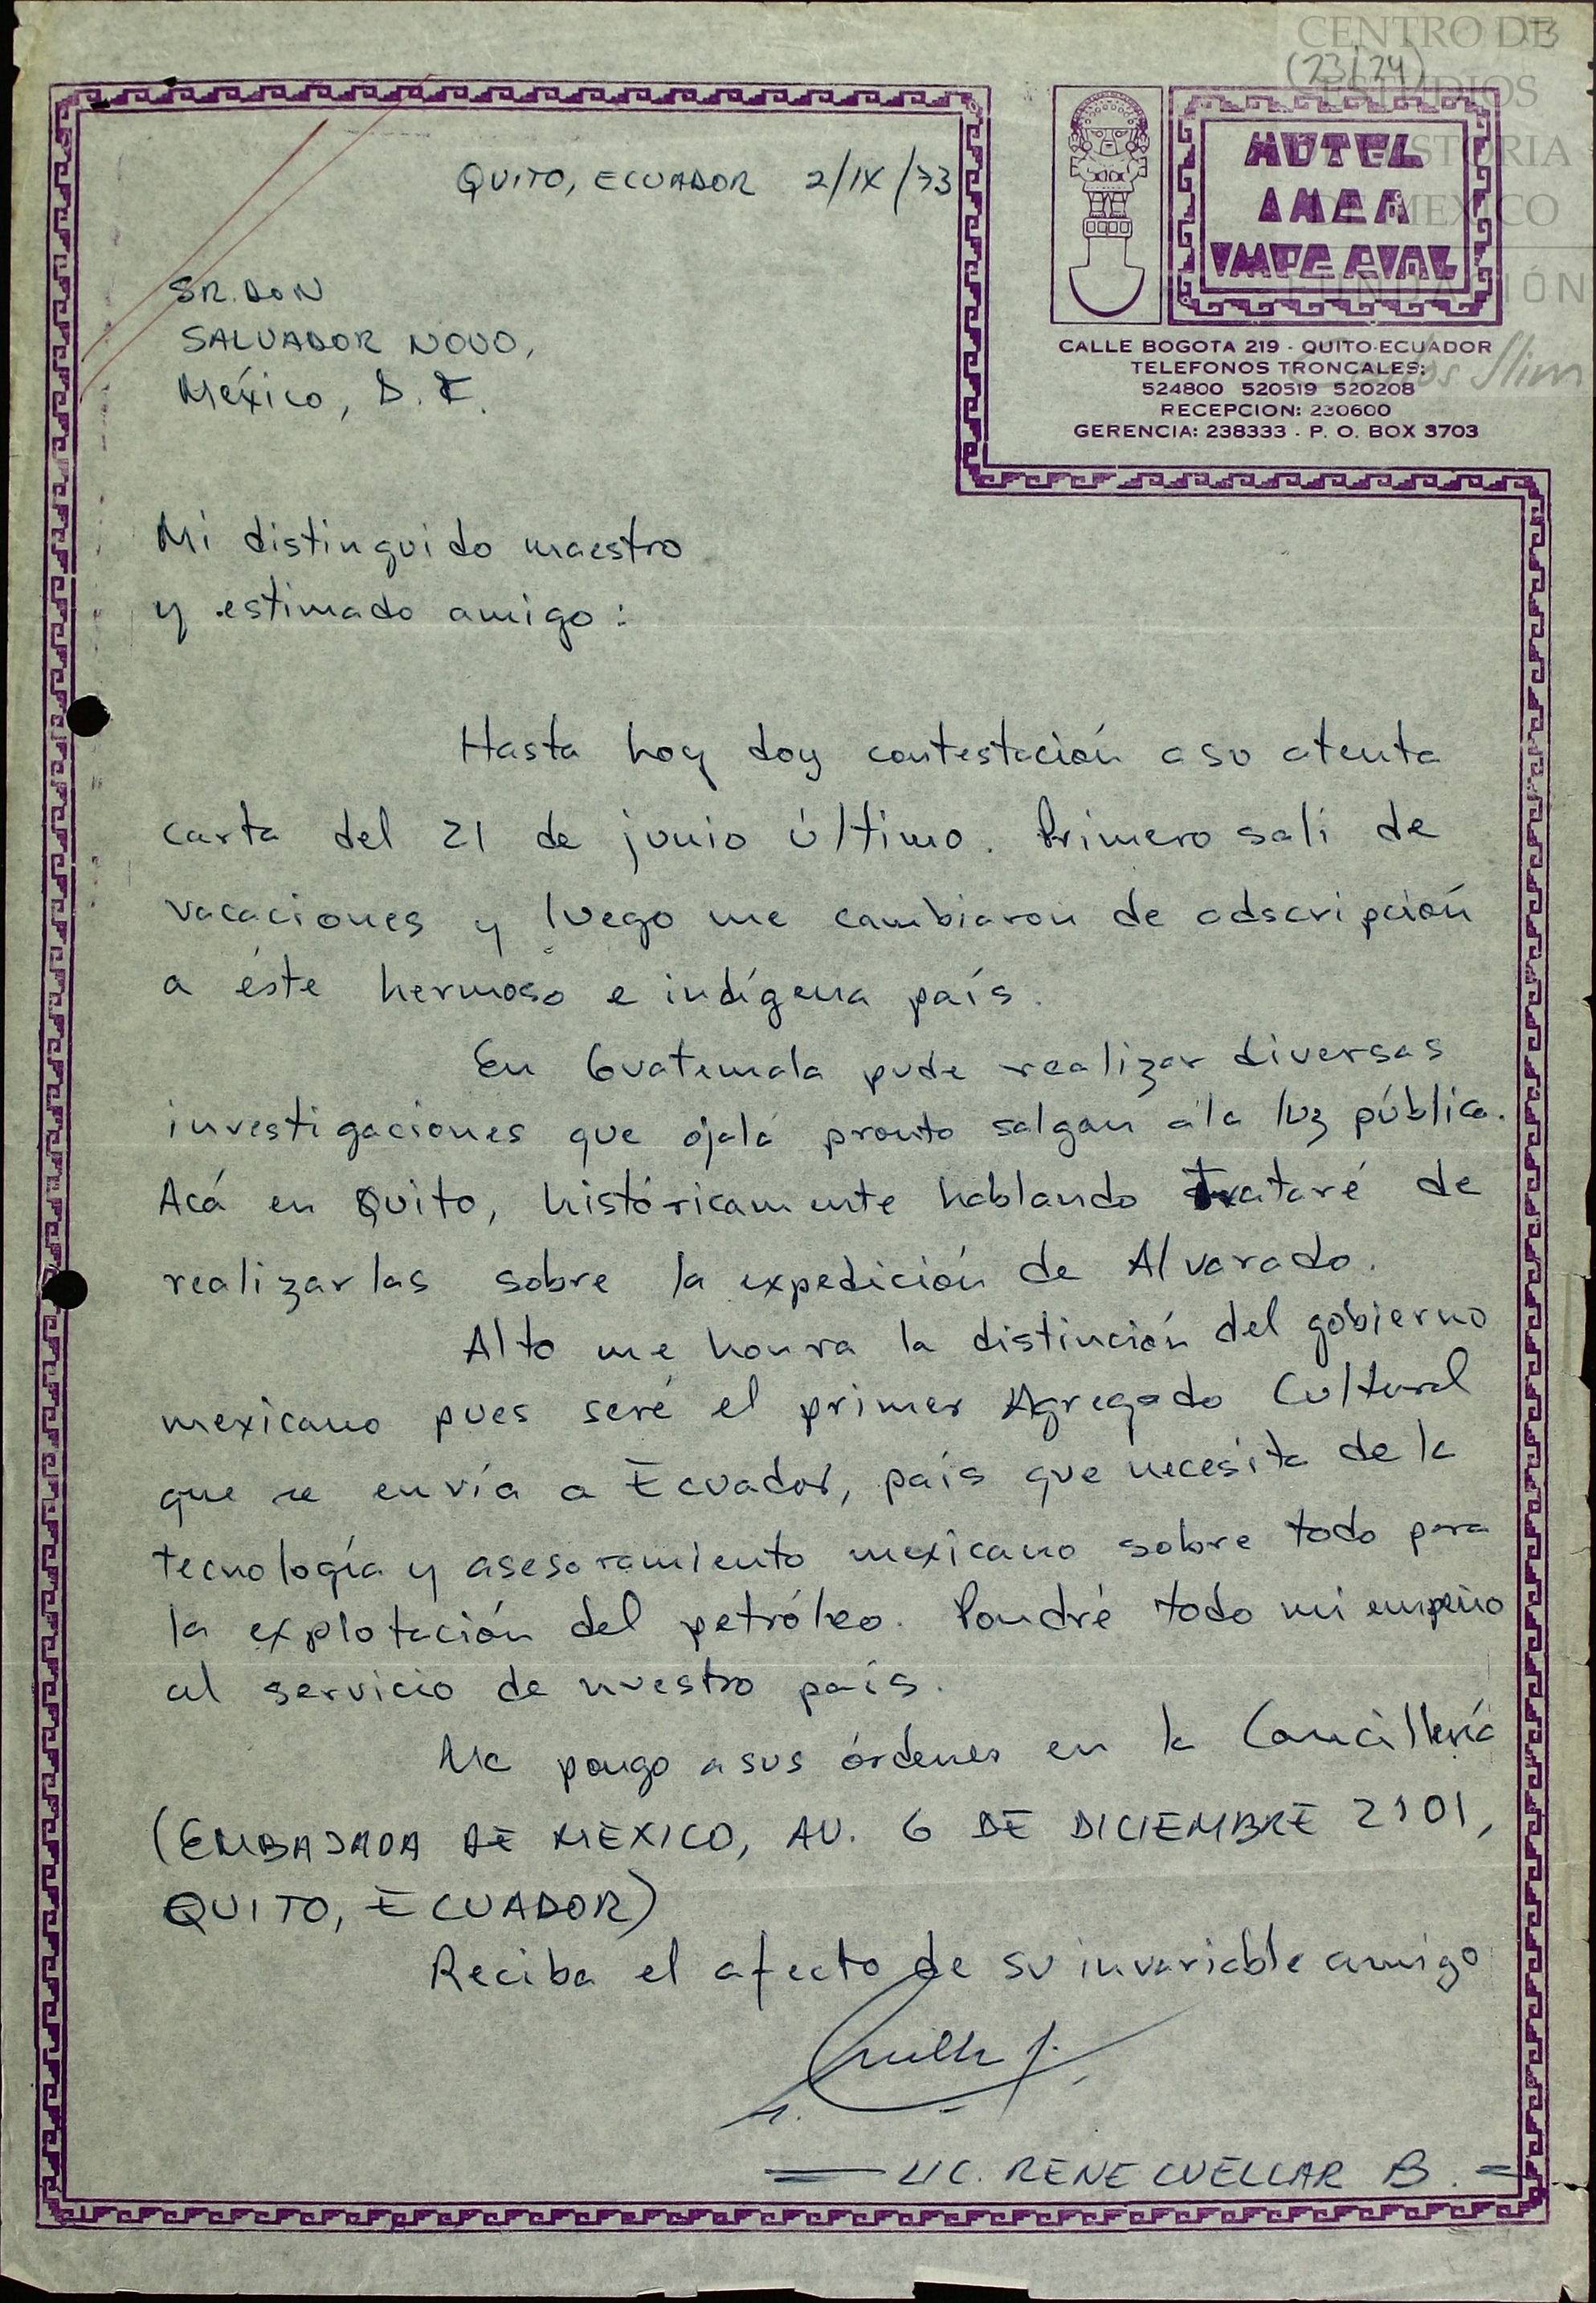 CENTRO DE
ESTUDIOS
(23/24)
HISTORIA
DE MEXICO
FUNDACIÓN
Carlos Slim
HOTEL
INCA
IMPERIAL
CALLE BOGOTA 219 - QUITO-ECUADOR
TELEFONOS TRONCALES:
524800 520519 520208
RECEPCION: 230600
GERENCIA: 238333 - P. O. BOX 3703
QUITO, ECUADOR 2/IX/73
SR. DON
SALVADOR NOVO,
México, D. F.
Mi distinguido maestro
y estimado amigo:
Hasta hoy doy contestación a su atenta
carta del 21 de junio último. Primero salí de
vacaciones y luego me cambiaron de adscripción
a éste hermoso e indígena país.
En Guatemala pude realizar diversas
investigaciones que ojalá pronto salgan a la luz pública.
Acá en Quito, históricamente hablando trataré de
realizarlas sobre la expedición de Alvarado.
Alto me honra la distinción del gobierno
mexicano pues seré el primer Agregado Cultural
que se envía a Ecuador, país que necesita de la
tecnología y asesoramiento mexicano sobre todo para
la explotación del petróleo. Pondré todo mi empeño
al servicio de nuestro país.
Me pongo a sus órdenes en la Cancillería
(EMBAJADA DE MEXICO, AV. 6 DE DICIEMBRE 2101,
QUITO, ECUADOR)
Reciba el afecto de su invariable amigo
LIC. RENE CUELLAR B.